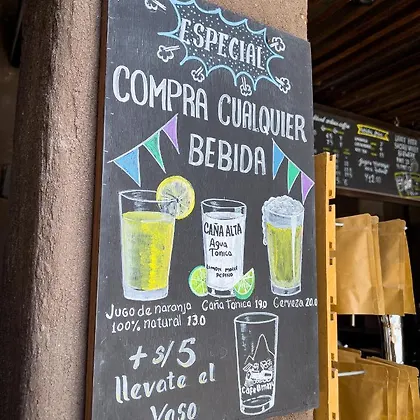 ESPECIAL
COMPRA CUALQUIER
BEBIDA
CAÑA ALTA
Agua
Tónica
LIMON MALTE
PEPINO
Jugo de naranja
100% natural 13.0
Caña Tónica 19.0
Cerveza 20.0
+ s/5
llevate el
vaso